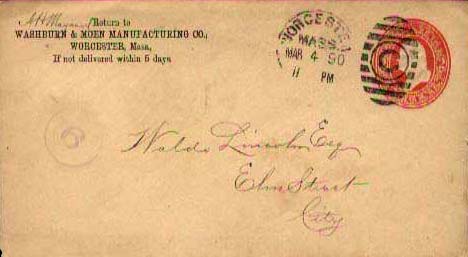 Return to
WASHBURN & MOEN MANUFACTURING CO.,
WORCESTER, Mass.,
If not delivered within 5 days.
WORCESTER
MASS.
MAR 4 90
11 PM
Waldo Lincoln Esq
Elm Street
City